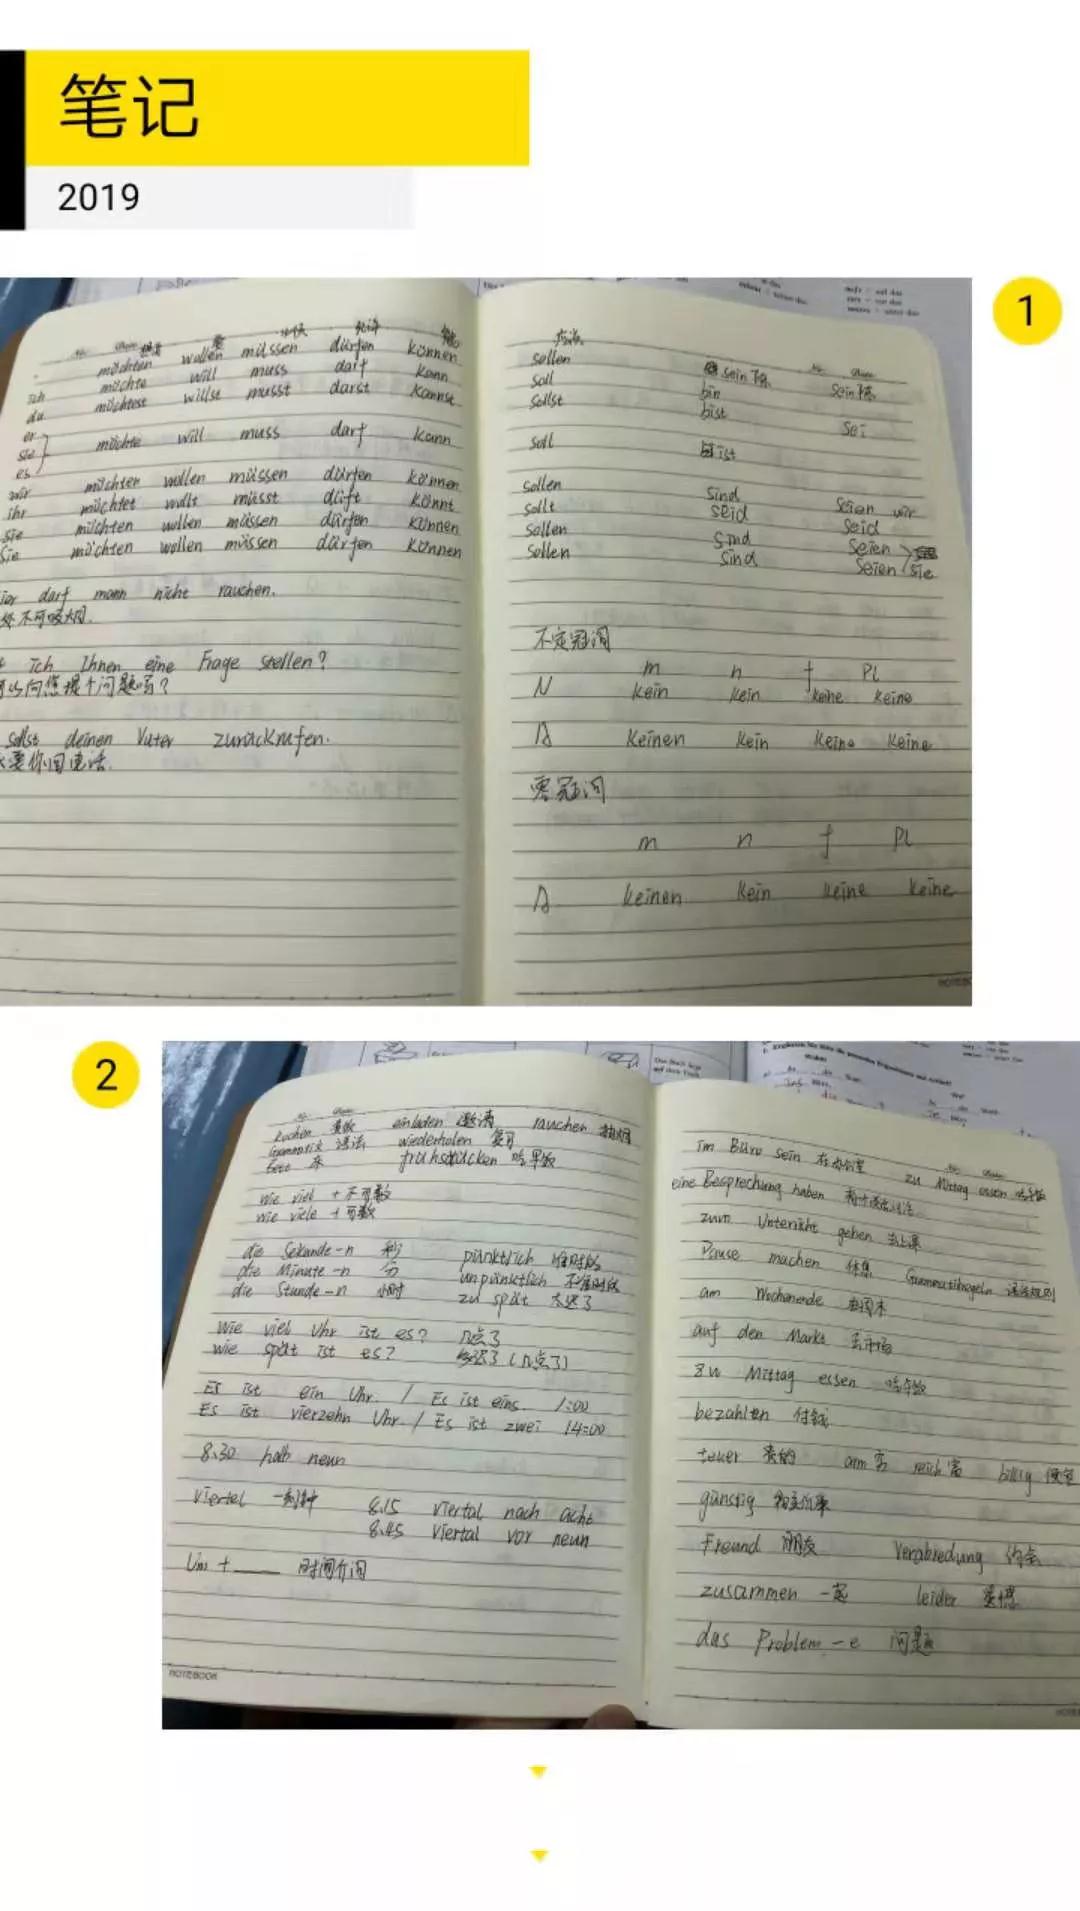 笔记
2019
1
möchten wollen müssen dürfen können
ich möchte will muss darf kann
du möchtest willst musst darst kannst
er
sie möchte will muss darf kann
es
wir möchten wollen müssen dürfen können
ihr möchtet wollt müsst dürft könnt
sie möchten wollen müssen dürfen können
Sie möchten wollen müssen dürfen können
darf mann nicht rauchen.
不可吸烟.
ich Ihnen eine Frage stellen?
以向您提个问题吗?
sollst deinen Vater zurückrufen.
要你回电话.
应该
sollen
soll sein
sollst bin
bist sei
soll ist
sollen sind seien wir
sollt seid seid
sollen sind seien
sollen sind seien sie
不定冠词
m n f Pl
N kein kein keine keine
A keinen kein keine keine
零冠词
m n f Pl
A keinen kein keine keine
2
kochen einladen 邀请 rauchen 抽烟
Grammatik 语法 wiederholen 复习
frühstücken 吃早饭
wie viel + 不可数
wie viele + 可数
die Sekunde-n 秒 pünktlich 准时的
die Minute-n 分 unpünktlich 不准时的
die Stunde-n 小时 zu spät 太迟了
Wie viel Uhr ist es? 几点了
wie spät ist es? 多迟了(几点了)
Es ist ein Uhr. / Es ist eins. 1:00
Es ist vierzehn Uhr / Es ist zwei 14:00
8.30 halb neun
Viertel 一刻钟 8.15 viertal nach acht
8.45 viertal vor neun
Um + ____ 时间介词
NOTEBOOK
im Büro sein 在办公室 zu Mittag essen 吃午饭
eine Besprechung haben
zum Unterricht gehen 去上课
Pause machen 休息 Grammatikregeln 语法规则
am Wochenende 在周末
auf den Markt 去市场
zu Mittag essen 吃午饭
bezahlten 付钱
teuer 贵的 arm 穷 reich 富 billig 便宜
günstig
Freund 朋友 Verabredung 约会
zusammen 一起 leider 遗憾
das Problem -e 问题